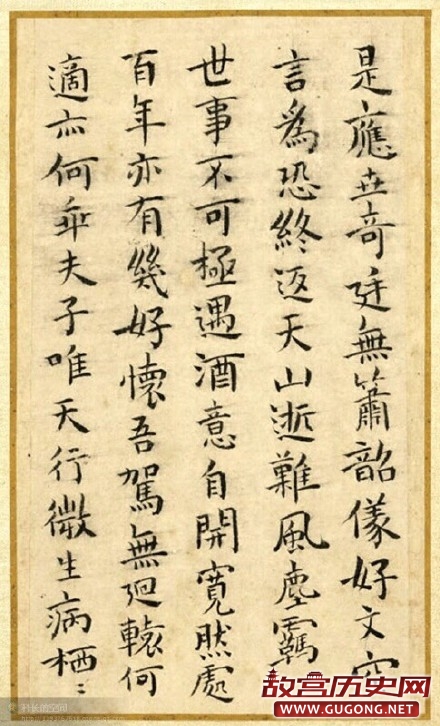 是應世奇廷無簫韶儀好文空
言爲恐終返天山逝難風塵羈
世事不可極遇酒意自開寬然處
百年亦有幾好懷吾駕無迴轅何
適亦何乖夫子唯天行微生病栖〻
科长的空间
故宫历史网
WWW.GUGONG.NET